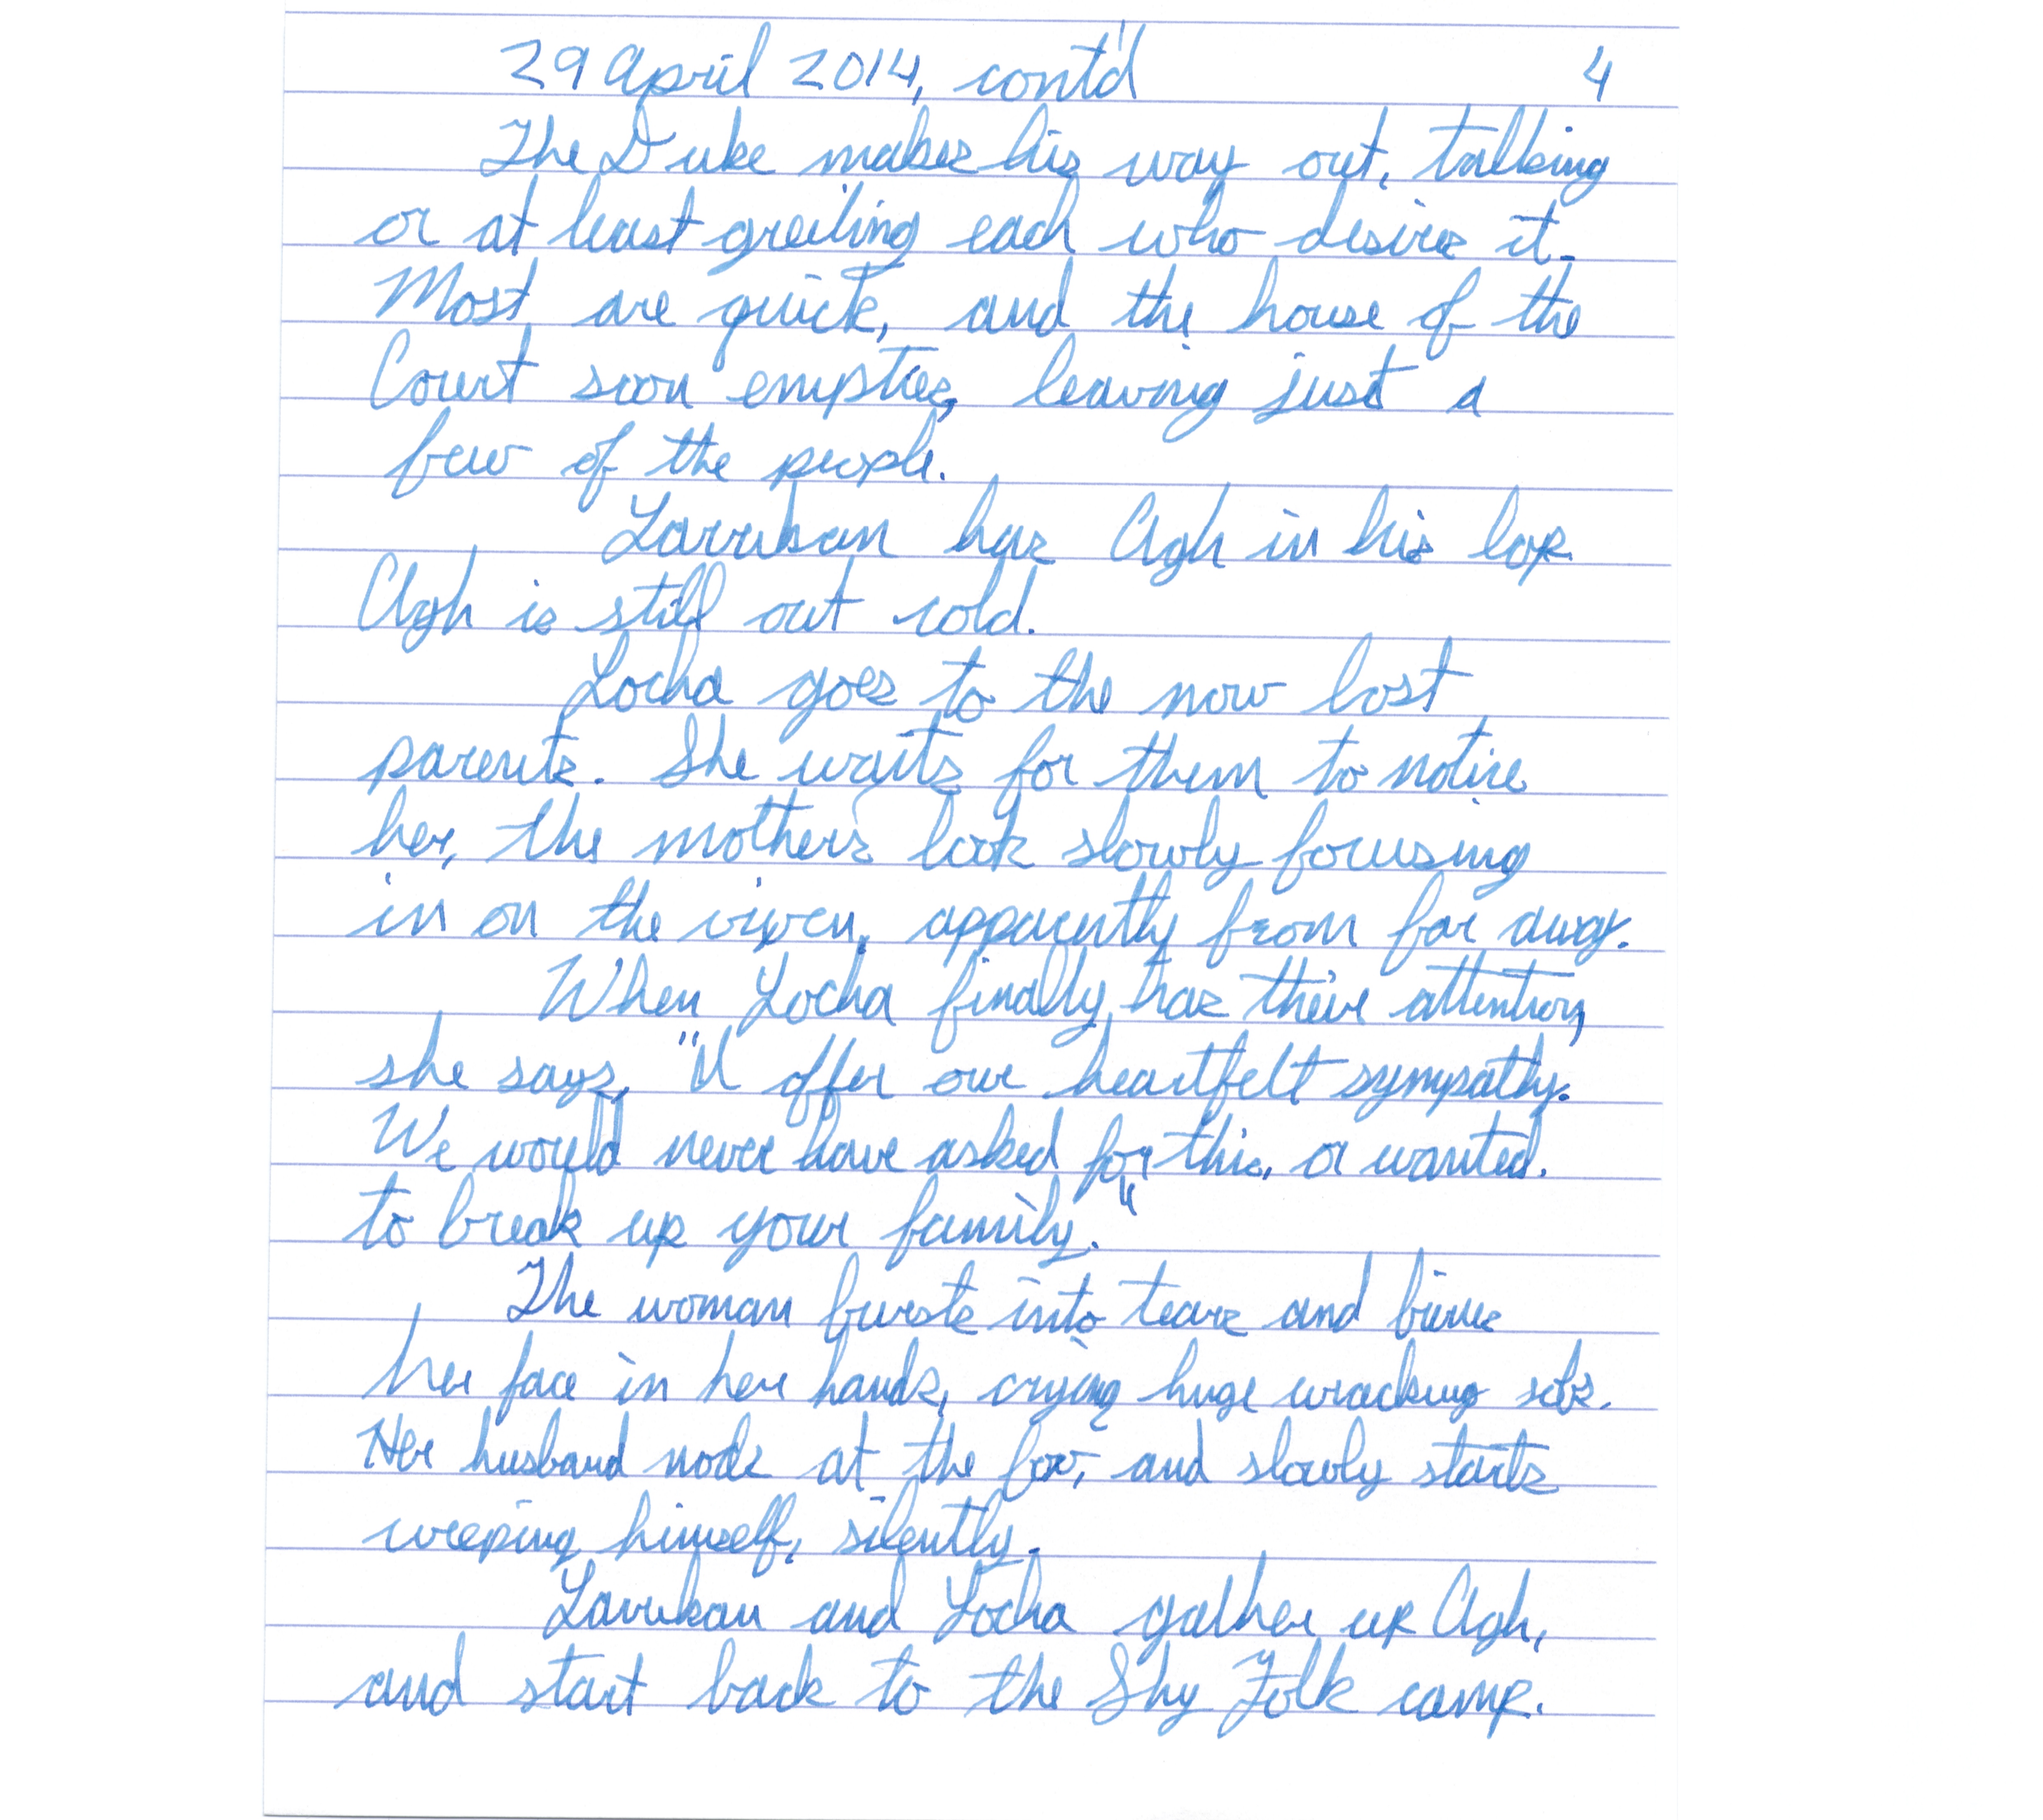 29 April 2014, cont'd 4
The Duke makes his way out, talking
or at least greeting each who desires it.
Most are quick, and the house of the
Court soon empties, leaving just a
few of the people.
Larrukan has Agh in his lap.
Agh is still out cold.
Locha goes to the now lost
parents. She waits for them to notice
her, the mother's look slowly focusing
in on the vixen, apparently from far away.
When Locha finally has their attention,
she says, "I offer our heartfelt sympathy.
We would never have asked for this, or wanted
to break up your family."
The woman bursts into tears and buries
her face in her hands, crying huge wracking sobs.
Her husband nods at the fox, and slowly starts
weeping himself, silently.
Larrukan and Locha gather up Agh,
and start back to the Shy Folk camp.